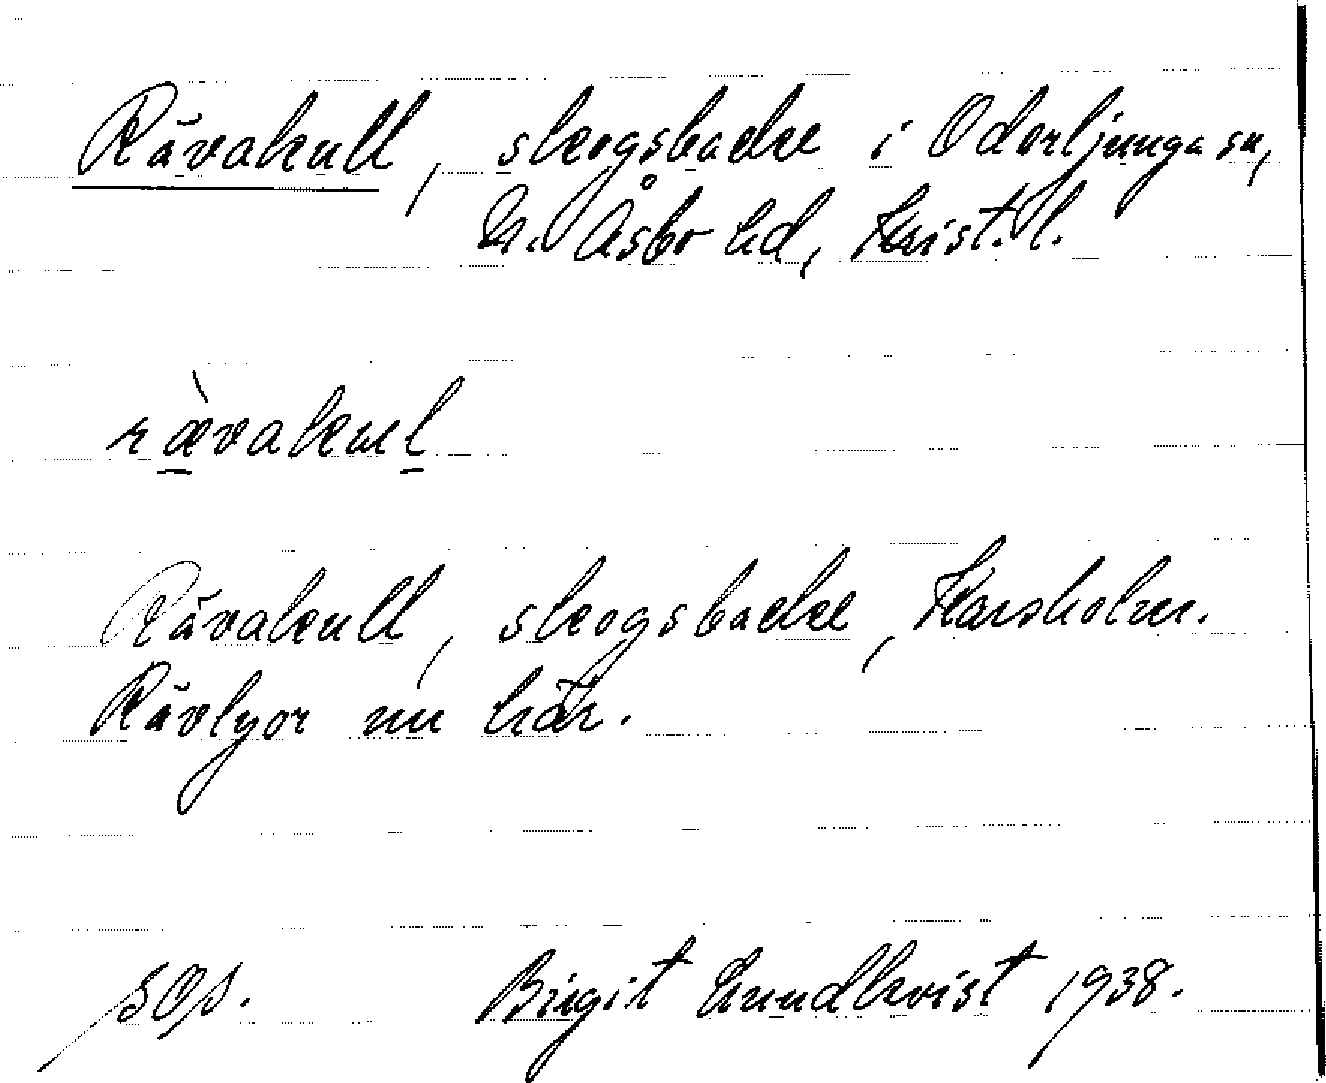 Rävakull, skogsbacke i Oderljunga sn,
N. Åsbo hd, Krist. l.
rævakul
Rävakull, skogsbacke, Karsholm.
Rävlyor nu här.
Birgit Lundkvist 1938.